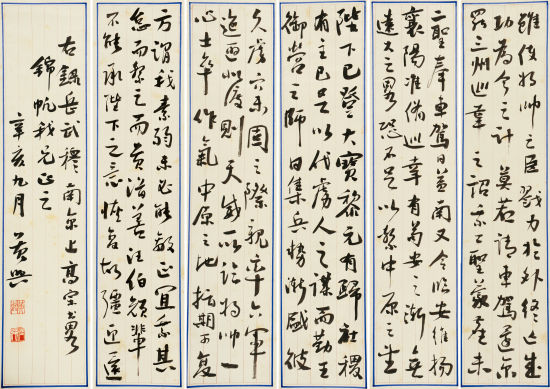 雖使將帥之臣戮力於外終亡成
功為今之計莫若請車駕還京
罷三州巡幸之詔乘二聖蒙塵未
二聖奉車駕日益南又令長安維揚
襄陽準備巡幸有苟安之漸無
遠大之略恐不足以繫中原之望
陛下已登大寶黎元有歸社稷
有主已足以伐虜人之謀而勤王
御營之師日集兵勢漸盛彼
久虜穴未固之際親率六軍
迤邐北渡則天威所臨將帥一
心士卒作氣中原之地指期可復
方謂我素弱未必能敵正宜乘其
怠而擊之而黃潛善汪伯顏輩
不能承陛下之意恢復故疆迎還
右錄岳武穆南京上高宗書略
錦帆我兄正之
辛亥九月 黃興